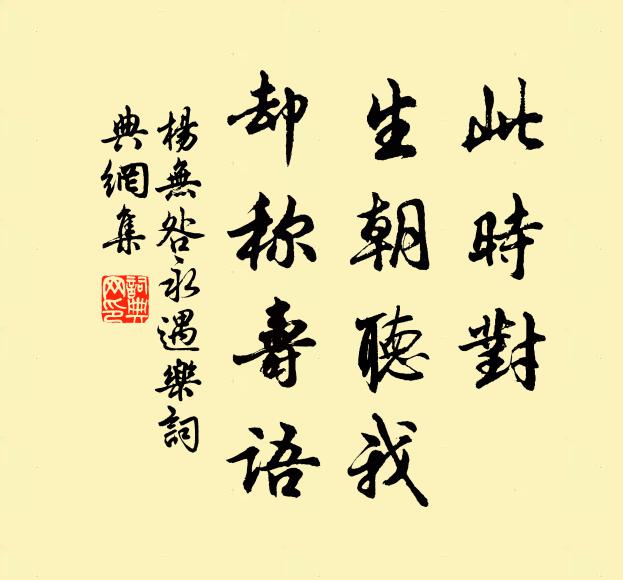 此時對
生朝聽我
却称壽語
楊無咎永遇樂詞
典網集
詞典
网印